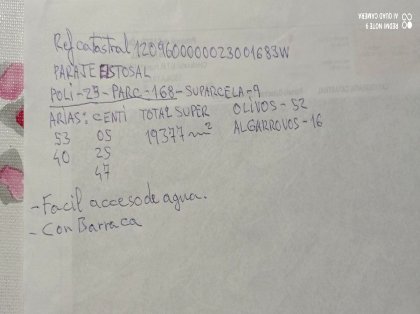 Ref catastral 12096000000023001683W
PARAJE ESTOSAL
POLI-25-PARC-168-SUPARCELA-9
ARIAS: CENTI TOTAL SUPER OLIVOS-52
53 05 19377 m² ALGARROVOS-16
40 25
47
-Facil acceso de agua.
-Con Barraca
AI QUAD CAMERA
REDMI NOTE 8